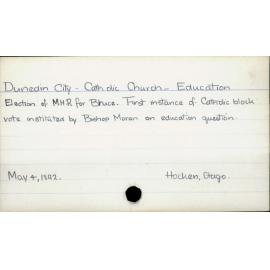 Dunedin City - Catholic Church - Education
Election of M.H.R for Bruce. First instance of Catholic block
vote instituted by Bishop Moran on education question.
May 4, 1892. Hocken, Otago.